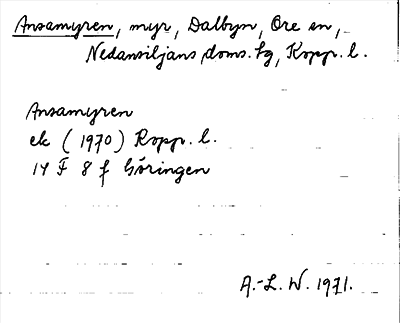 Ansamyren, myr, Dalbyn, Ore sn,
Nedansiljans doms. tg, Kopp. l.
Ansamyren
ek (1970) Kopp. l.
14 F 8 f Göringen
A.-L. W. 1971.